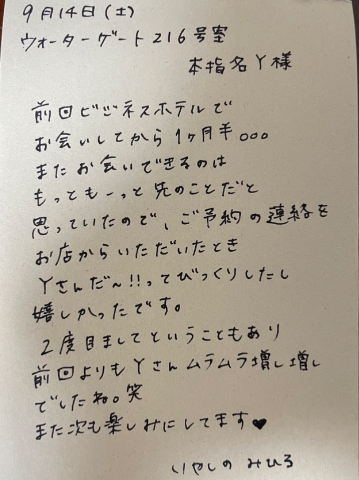 9月14日(土)
ウォーターゲート216号室
本指名Y様
前回ビジネスホテルで
お会いしてから1ヶ月半。。。
またお会いできるのは
もっともーっと先のことだと
思っていたので、ご予約の連絡を
お店からいただいたとき
Yさんだ〜!!ってびっくりしたし
嬉しかったです。
2度目ましてということもあり
前回よりもYさんムラムラ増し増し
でしたね。笑
また次も楽しみにしてます♥
いやしの みひろ